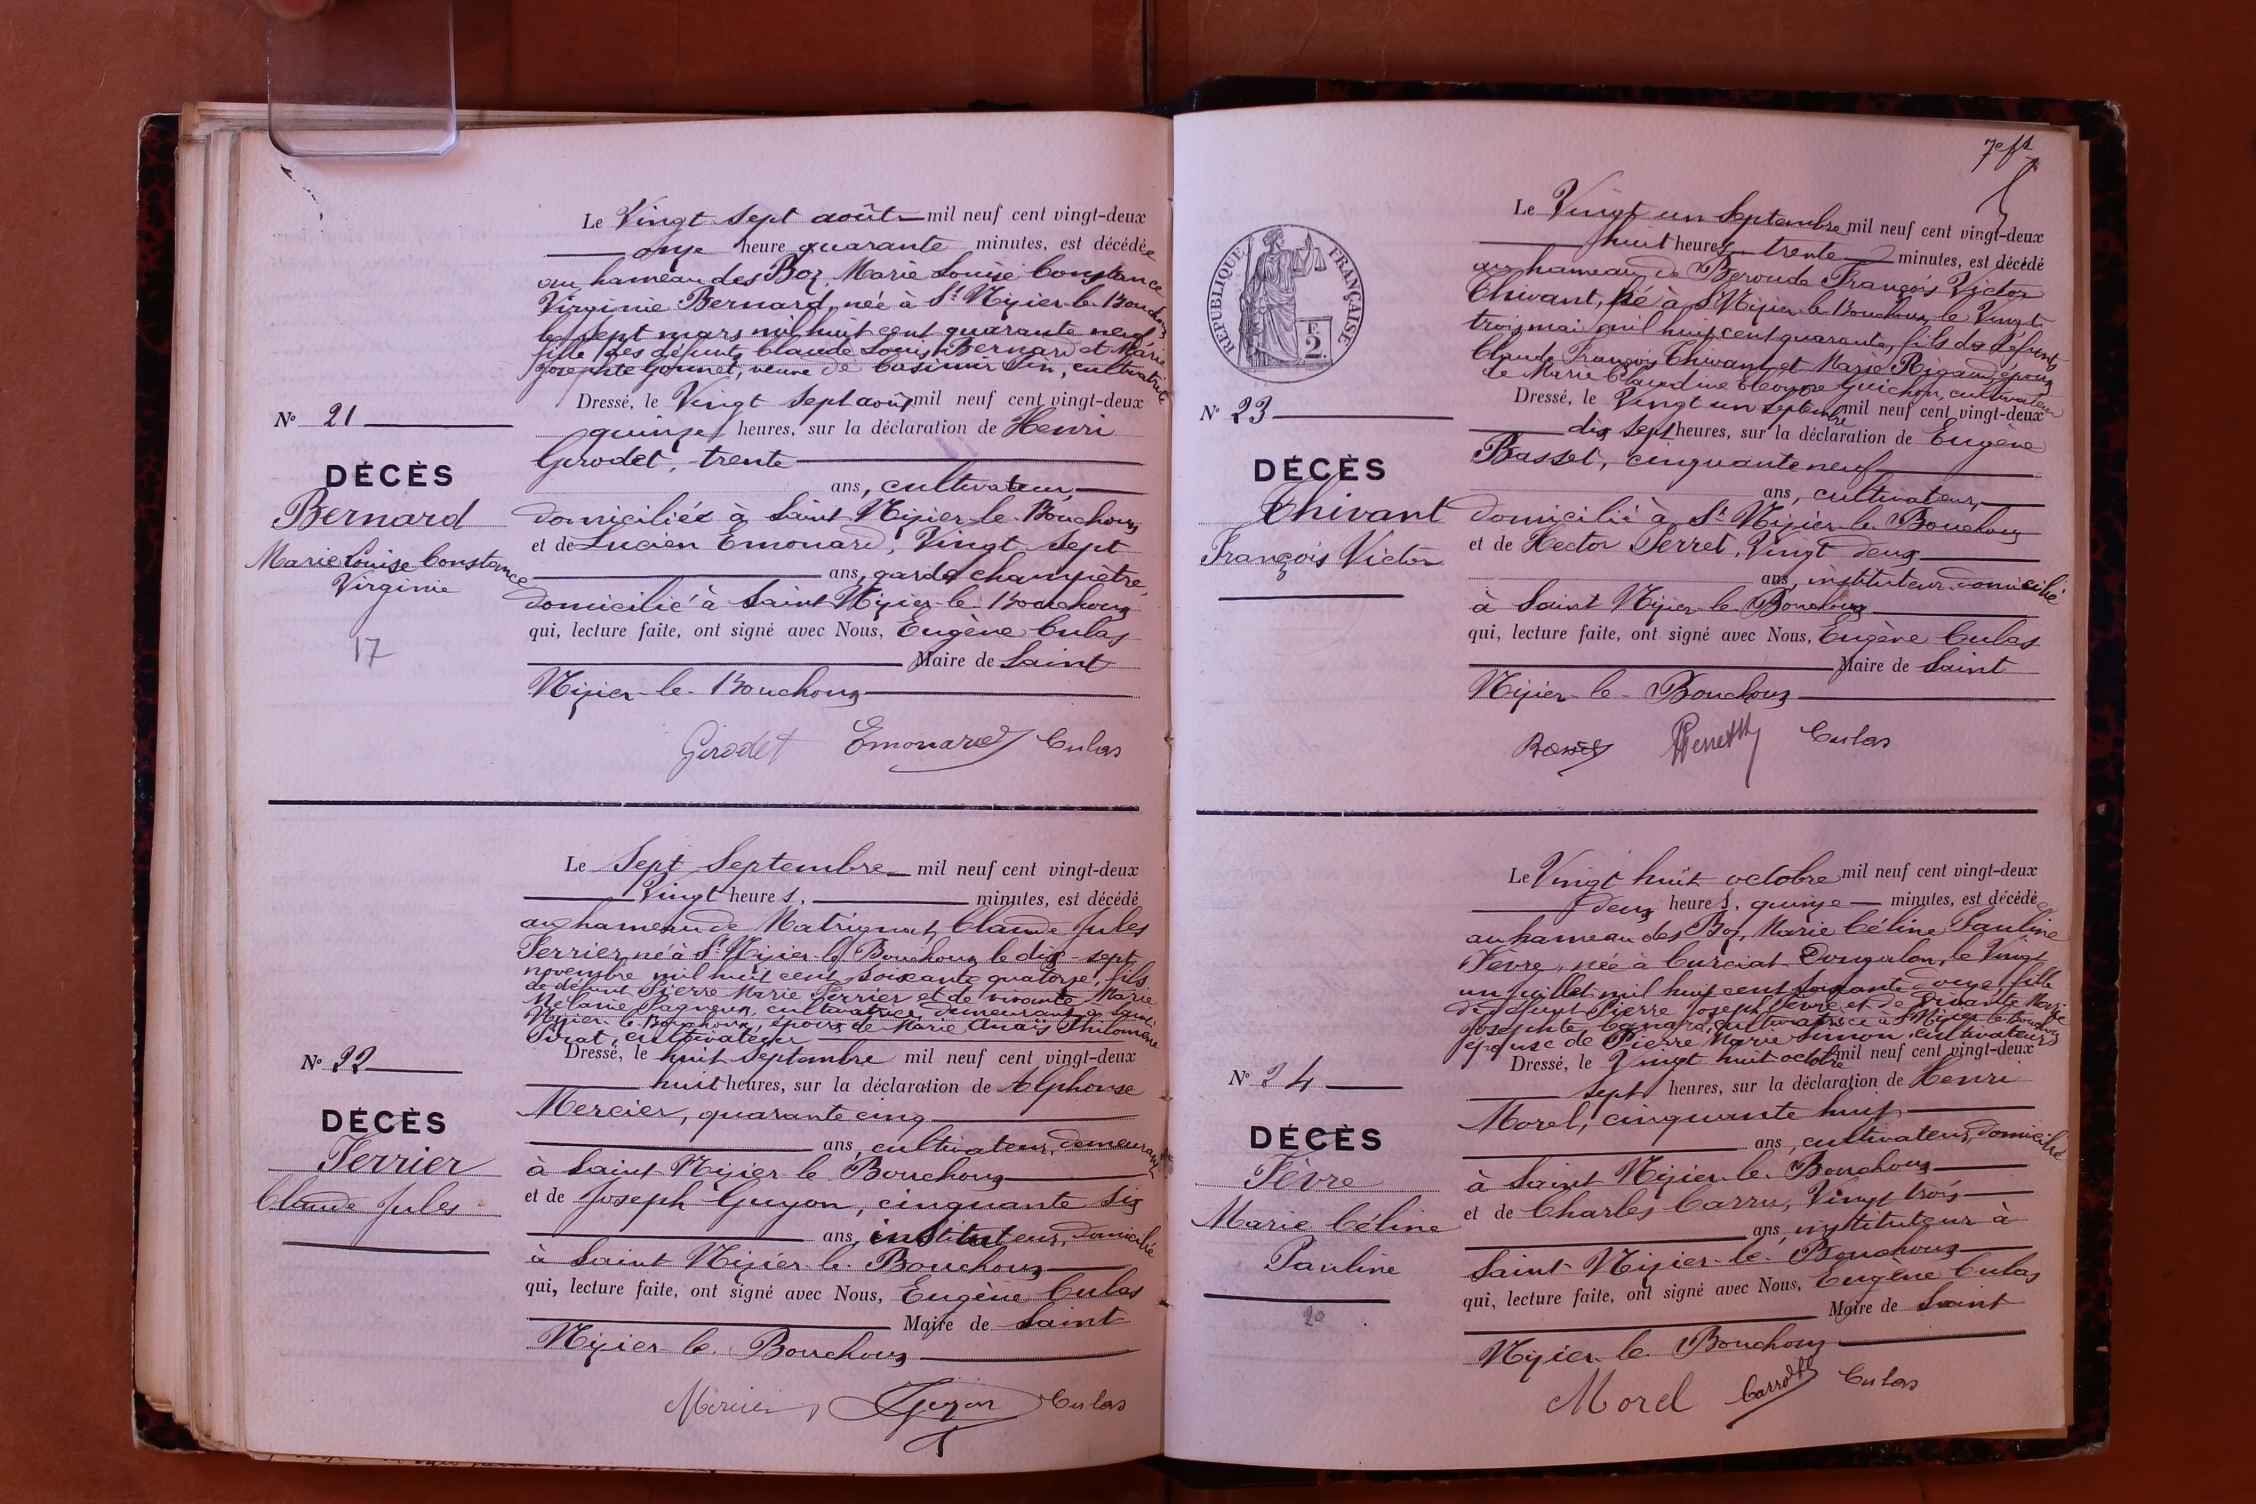 Le Vingt Sept août mil neuf cent vingt-deux
onze heure quarante minutes, est décédée
au hameau des Boz, Marie Louise Constance
Virginie Bernard, née à St Nizier-le-Bouchoux
le sept mars mil huit cent quarante neuf
fille des défunts Claude Louis Bernard et Marie
Josephte Gonnet, veuve de Casimir, cultivatrice
Dressé, le Vingt Sept août mil neuf cent vingt-deux
quinze heures, sur la déclaration de Henri
Girodet, trente
ans, cultivateur,
domiciliés à Saint Nizier-le-Bouchoux
et de Lucien Emonard, Vingt Sept
ans, garde champêtre,
domicilié à Saint Nizier-le-Bouchoux
qui, lecture faite, ont signé avec Nous, Eugène Culas
Maire de Saint
Nizier-le-Bouchoux
Girodet Emonard Culas
N° 21
DÉCÈS
Bernard
Marie Louise Constance
Virginie
17
Le Sept Septembre mil neuf cent vingt-deux
Vingt heures, minutes, est décédé
au hameau de Matrignat, Claude Jules
Ferrier, né à St Nizier-le-Bouchoux le dix-sept
novembre mil huit cent soixante quatorze, fils
de défunt Pierre Marie Ferrier et de vivante Marie
Mélanie, cultivatrice demeurant à Saint
Nizier-le-Bouchoux, époux de Marie Anaïs Philomène
Pirat, cultivateur
Dressé, le huit Septembre mil neuf cent vingt-deux
huit heures, sur la déclaration de Alphonse
Mercier, quarante cinq
ans, cultivateur, demeurant
à Saint Nizier-le-Bouchoux
et de Joseph Guyon, cinquante six
ans, instituteur, domicilié
à Saint Nizier-le-Bouchoux
qui, lecture faite, ont signé avec Nous, Eugène Culas
Maire de Saint
Nizier-le-Bouchoux
Mercier Guyon Culas
N° 22
DÉCÈS
Ferrier
Claude Jules
7e ft
RÉPUBLIQUE FRANÇAISE
2 F.
Le Vingt un Septembre mil neuf cent vingt-deux
huit heures trente minutes, est décédé
au hameau de Béroude François Victor
Thivant, né à St Nizier-le-Bouchoux le Vingt
trois mai mil huit cent quarante, fils des défunts
Claude François Thivant et Marie Rigaud, époux
de Marie Claudine Eléonore Guichon, cultivateur
Dressé, le Vingt un septembre mil neuf cent vingt-deux
dix sept heures, sur la déclaration de Eugène
Basset, cinquante neuf
ans, cultivateur,
domicilié à St Nizier-le-Bouchoux
et de Hector Perret, Vingt deux
ans, instituteur domicilié
à Saint Nizier-le-Bouchoux
qui, lecture faite, ont signé avec Nous, Eugène Culas
Maire de Saint
Nizier-le-Bouchoux
Basset Perret Culas
N° 23
DÉCÈS
Thivant
François Victor
Le Vingt huit octobre mil neuf cent vingt-deux
deux heures, quinze minutes, est décédée
au hameau des Boz, Marie Céline Pauline
Fèvre, née à Curciat Dongalon, le Vingt
un juillet mil huit cent soixante douze, fille
de défunt Pierre Joseph Fèvre et de vivante Marie
Josephte Canard, cultivatrice à St Nizier-le-Bouchoux
épouse de Pierre Marie Simon, cultivateurs
Dressé, le Vingt huit octobre mil neuf cent vingt-deux
sept heures, sur la déclaration de Henri
Morel, cinquante huit
ans, cultivateur, domicilié
à Saint Nizier-le-Bouchoux
et de Charles Carru, Vingt trois
ans, instituteur à
Saint-Nizier-le-Bouchoux
qui, lecture faite, ont signé avec Nous, Eugène Culas
Maire de Saint
Nizier-le-Bouchoux
Morel Culas
N° 24
DÉCÈS
Fèvre
Marie Céline
Pauline
20